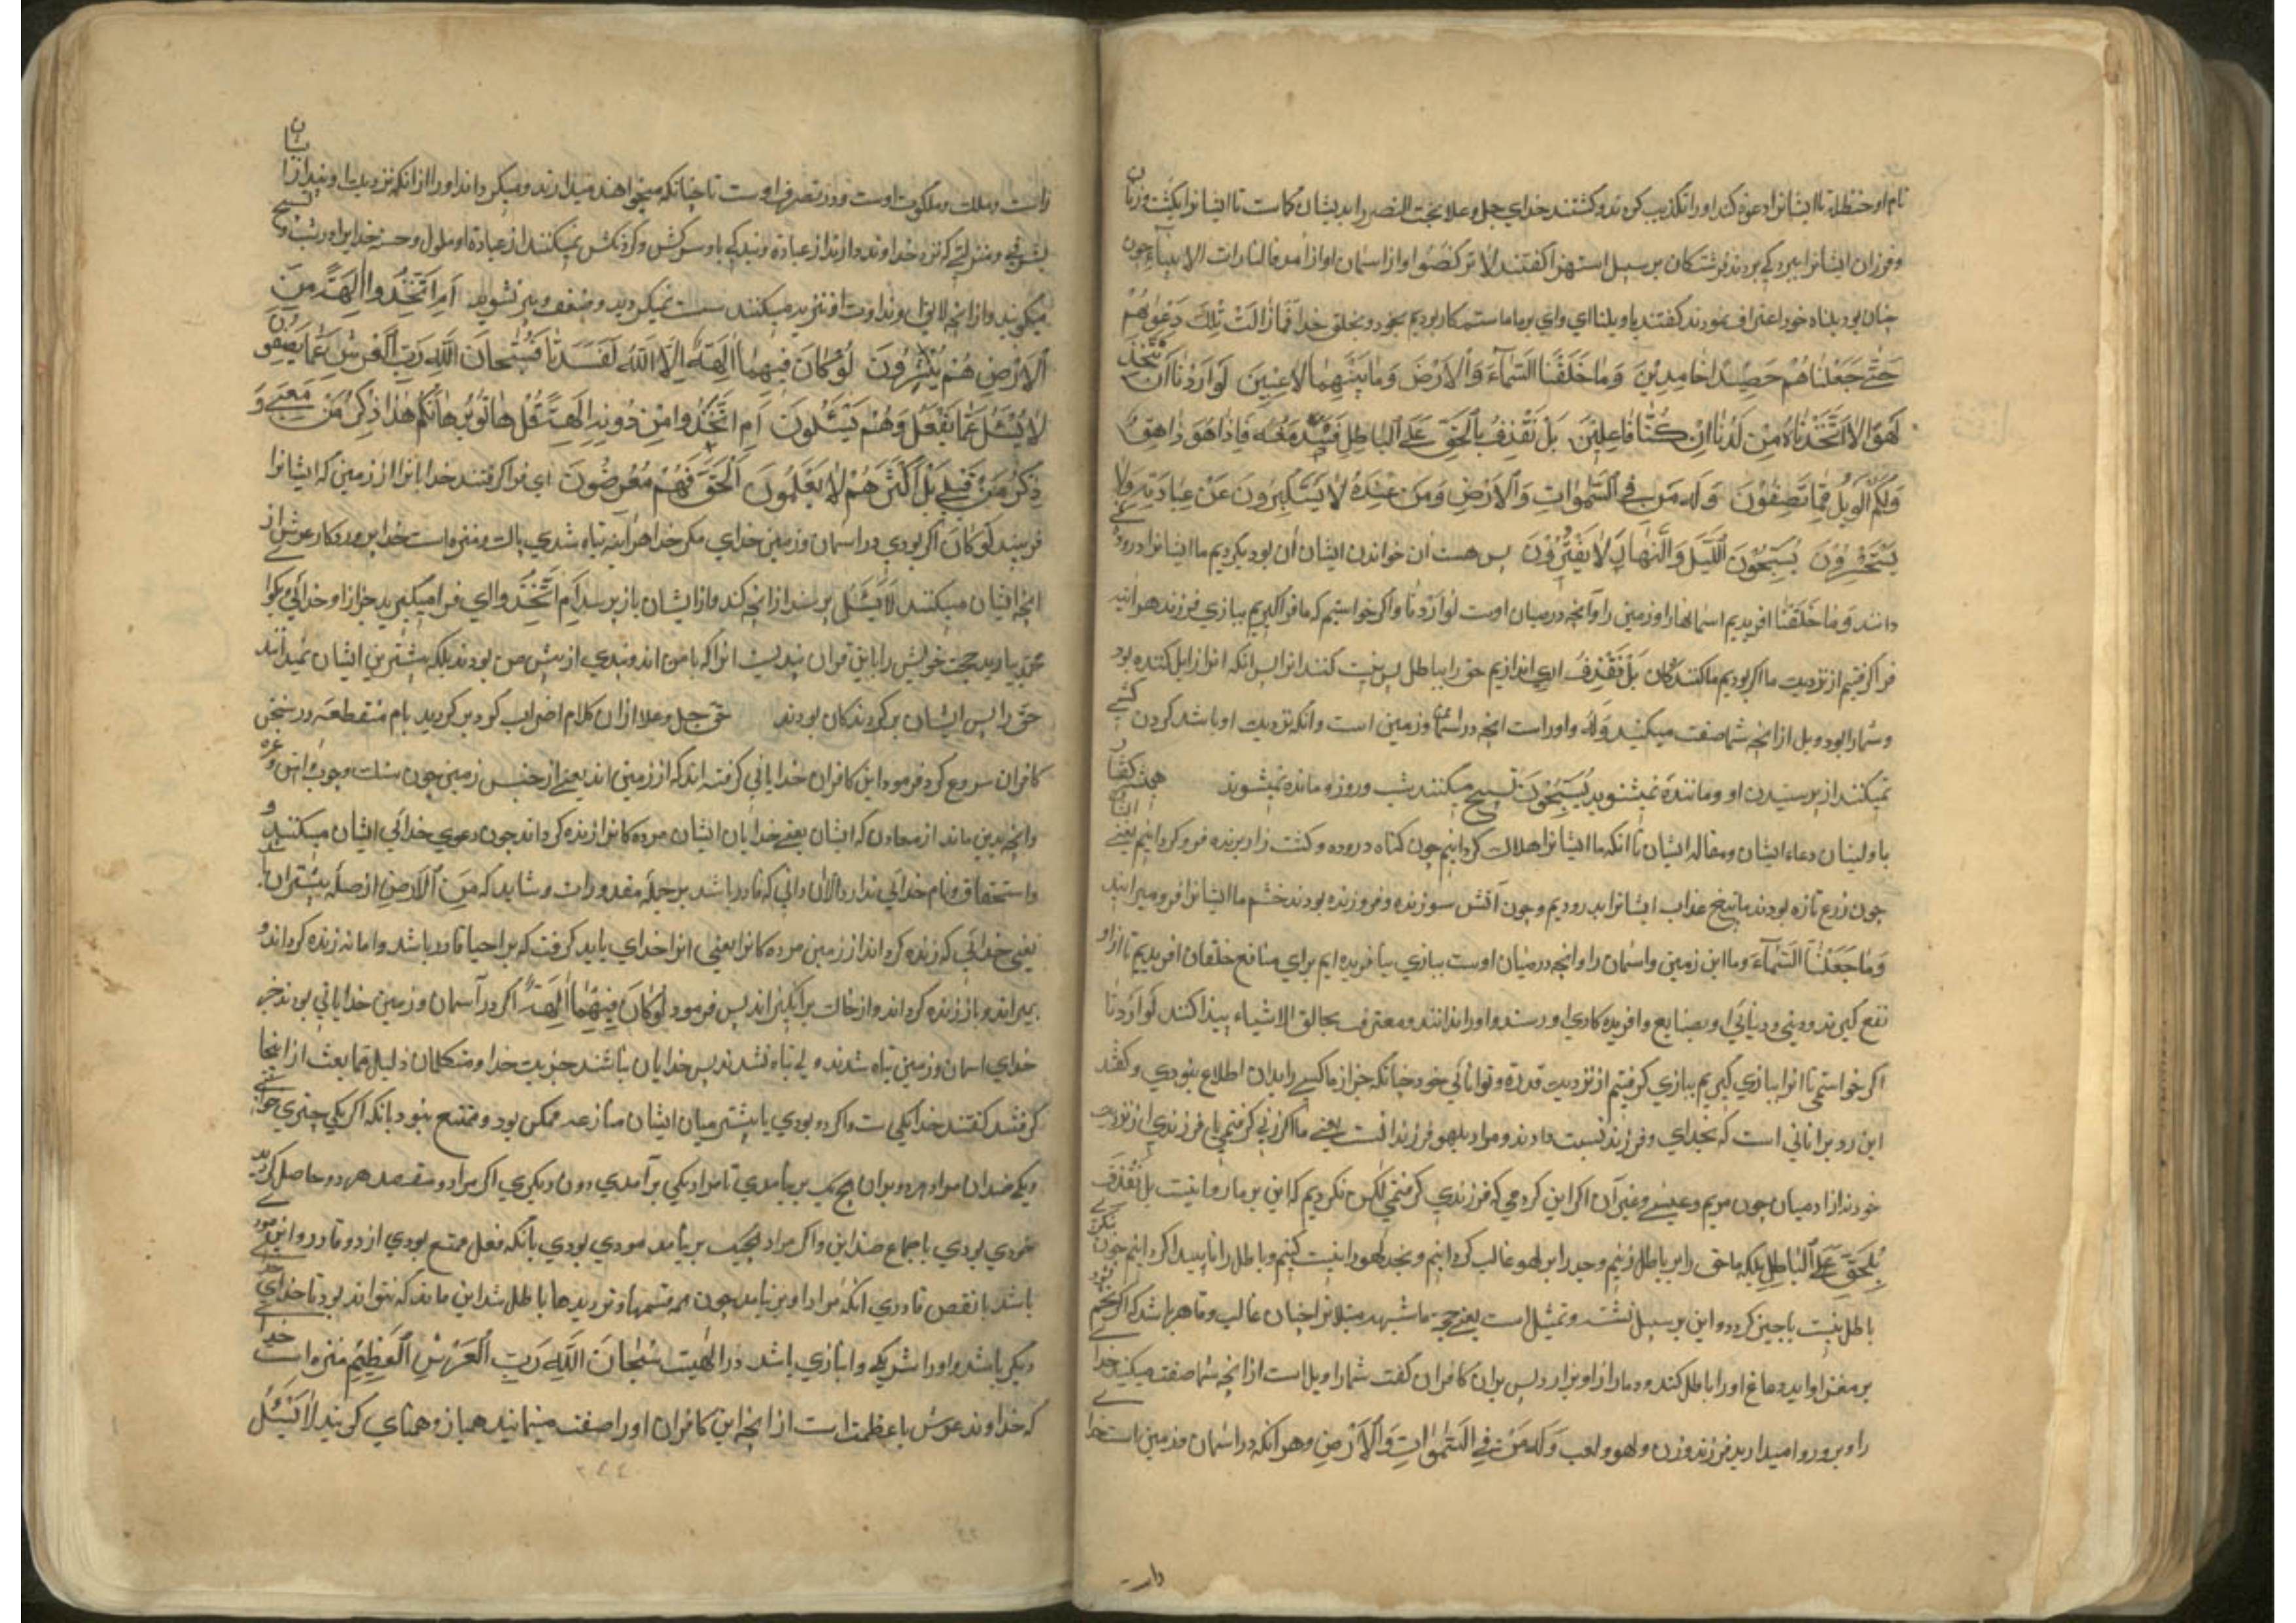 نام او حنظله تا ایشانرا دعوة کند او را تکذیب کردند و کشتند خدای جل و علا بخت النصر را بدیشان کاست تا ایشانرا بکشت و زنان
و فرزان ایشانرا ببردکی بردند فرشتکان بر سبیل استهزا کفتند لا ترکضوا و از اسمان اواز آمد یا لثارات الانبیاء چون
چنان بود بکناه خود اعتراف نمودند کفتند یا ویلنا ای وای بر ما ما ستمکار بودیم بخود و بخلق خدا فَمَازَالَتْ تِلْكَ دَعْوٰیهُمْ
حَتّٰی جَعَلْنَاهُمْ حَصِیْدًا خَامِدِیْنَ وَمَا خَلَقْنَا السَّمَآءَ وَالْاَرْضَ وَمَا بَیْنَهُمَا لَاعِبِیْنَ لَوْ اَرَدْنَا اَنْ نَتَّخِذَ
لَهْوًا لَاتَّخَذْنَاهُ مِنْ لَدُنَّا اِنْ كُنَّا فَاعِلِیْنَ بَلْ نَقْذِفُ بِالْحَقِّ عَلَی الْبَاطِلِ فَیَدْمَغُهُ فَاِذَا هُوَ زَاهِقٌ
وَلَكُمُ الْوَیْلُ مِمَّا تَصِفُوْنَ وَلَهُ مَنْ فِی السَّمٰوَاتِ وَالْاَرْضِ وَمَنْ عِنْدَهُ لَا یَسْتَكْبِرُوْنَ عَنْ عِبَادَتِهِ وَلَا
یَسْتَحْسِرُوْنَ یُسَبِّحُوْنَ اللَّیْلَ وَالنَّهَارَ لَا یَفْتُرُوْنَ پس هست ان خواندن ایشان ان بود بکردیم ما ایشانرا دروده
دانند وَمَا خَلَقْنَا افریدیم اسمانها را و زمین را و آنچه در میان اوست لَوْ اَرَدْنَا و اکر خواستیم که ما فرا کیریم ببازی فرزند هر اینه
فرا کرفتیم از نزدیك ما اکر بودیم ما کنندکان بَلْ نَقْذِفُ ای اندازیم حق را بباطل پس نیست کنند انرا پس انکه انرا زایل کننده بود
و شما را بود ویل از انچه شما صفت میکنید وَلَهُ و او راست انچه در اسمان و زمین است و انکه نزدیك او باشد کردن کشی
نمیکنند از پرستیدن او و مانده نمیشوند یُسَبِّحُوْنَ تسبیح میکنند شب و روز و مانده نمیشوند
با ولینا ن دعاء ایشان و مقاله ایشان تا انکه ما ایشانرا هلاك کردانیم چون کیاه دروده و کشت
چون زرع تازه بودند عذاب ایشانرا بدرودیم و چون آتش سوزنده و فروزنده بودند خشم ما ایشانرا فرو میرانید
وَمَا جَعَلْنَا السَّمَآءَ و ما این زمین و اسمان را و انچه در میان اوست ببازی نیافریده ایم برای منافع خلقان افریدیم تا از او
نفع کیرند دینی و دنیائی و بصنایع و افریده کار او رسند و او را دانند و معترف بخالق الاشیاء پیدا کنند لَوْ اَرَدْنَا
اکر خواستمی تا انرا ببازی کیریم ببازی کرفتیم از نزدیك قدرة و توانائی خود چنانکه جز از ما کسی را بدان اطلاع نبودی و کفتند
این رد بر انانی است که بخدای و فرزند نسبت دادند و مراد بلهو فرزند است یعنی ما اکر زنی کرفتمی یا فرزندی از نزدیك
خود نه از ادمیان چون مریم و عیسی و غیر آن اکر این کردمی که فرزندی کرفتمی لکن نکردیم که این بر ما روا نیست بل نَقْذِفُ
بِالْحَقِّ عَلَی الْبَاطِلِ بلکه ما حق را بر باطل زنیم و جد را بر لهو غالب کردانیم و بجد لهو را نیست کنیم و باطل را ناپیدا کردانیم چون
باطل نیست ناچیز کردد و این بر سبیل تشبیه و تمثیل است یعنی حجة ما شبهه مبتلانرا چنان غالب و قاهر باشد که اکر
بر مغز او اید دماغ او را باطل کند و دمار از او برارد پس بران کافران کفت شما را ویل است از انچه شما صفت میکنید خدا
را و بر او روا میدارید فرزند و زن و لهو و لعب وَلَهُ مَنْ فِی السَّمٰوَاتِ وَالْاَرْضِ و هر انکه در اسمان و زمین است خدا
دار
راست و ملك و ملکوت اوست و در تصرف اوست تا چنانکه میخواهند میدارند و میکرداند او را از انکه نزدیك
بشرفی و منزلتی که نزد خداوند دارند از عبادة و بندکی باو سرکشی و کردنکشی نمیکنند از عبادة او ملول
میکویند و از انچه لایق خداوند است تنزیه میکنند سست نمیکردند و ضعیف و پیر نشوند اَمِ اتَّخَذُوْا اٰلِهَةً مِنَ
الْاَرْضِ هُمْ یُنْشِرُوْنَ لَوْ كَانَ فِیْهِمَا اٰلِهَةٌ اِلَّا اللهُ لَفَسَدَتَا فَسُبْحَانَ اللهِ رَبِّ الْعَرْشِ عَمَّا یَصِفُوْنَ
لَا یُسْئَلُ عَمَّا یَفْعَلُ وَهُمْ یُسْئَلُوْنَ اَمِ اتَّخَذُوْا مِنْ دُوْنِهِ اٰلِهَةً قُلْ هَاتُوْا بُرْهَانَكُمْ هٰذَا ذِكْرُ مَنْ مَعِیَ وَ
ذِكْرُ مَنْ قَبْلِی بَلْ اَكْثَرُهُمْ لَا یَعْلَمُوْنَ الْحَقَّ فَهُمْ مُعْرِضُوْنَ ای فرا کرفتند خدایانرا از زمین که ایشانرا
لَوْ كَانَ اکر بودی در اسمان و زمین خدای مکر خدا هراینه تباه شدی پاك و منزه است خدا پروردکار عرش از
انچه ایشان میکنند لَا یُسْئَلُ پرسند از انچه کند و از ایشان باز پرسد اَمِ اتَّخَذُوْا ای فرا میکیرید جز از او خدائی بکو
بیارید حجت خویش را باین قران پندیست انرا که با من اند و پندی از پیش من بودند بلکه بیشترین ایشان نمیدانند
حق را پس ایشان برکردندکان بودند حق جل و علا از ان کلام اضراب کرد و برکردید بام منقطعه و در سخن
کافران شروع کرد و فرمود این کافران خدایانی کرفته اند که از زمین اند یعنی از جنس زمین چون سنك و چوب و آهن و غیره
و انچه بدین ماند از معادن که ایشان یعنی خدایان ایشان مرده کانرا زنده کرداند چون دعوی خدائی ایشان میکنند و
و استحقاق نام خدائی ندارد الا ان ذاتی که قادر باشد بر جمله مقدورات و شاید که مِنَ الْاَرْضِ از صلهٔ ینشرون باشد
یعنی خدائی که زنده کرداند از زمین مرده کانرا یعنی انرا خدای باید کرفت که بر احیا قادر باشد و اماته زنده کرداند و
بمیراند و باز زنده کرداند و از خاك برانکیزاند پس فرمود لَوْ كَانَ فِیْهِمَا اٰلِهَةٌ اکر در آسمان و زمین خدایانی بودند جز
خدای اسمان و زمین تباه شدند و لی تباه نشدند پس خدایان نباشند جز یك خدا و متکلمان دلیل تمانعت از اینجا
کرفتند کفتند خدا یکی است و اکر دو بودی یا بیشتر میان ایشان منازعه ممکن بود و ممتنع نبود بانکه اکر یکی چیزی خواستی
و یکی ضد ان مراد هر دو بران هیچ یك بر نیامدی تا مراد یکی بر آمدی دون دیکری اکر مراد و مقصد هر دو حاصل
بودی باجماع ضداین و اکر مراد هیچیك بر نیامدی بانکه فعل ممتنع بودی از دو قادر
باشد یا نقص قادری انکه مراد او بر نیامد چون همه قسمها و تردیدها باطل شد این ماند که نتواند بود تا خدای
دیکر باشد و او را شریکی و انبازی باشد در الهیت سُبْحَانَ اللهِ رَبِّ الْعَرْشِ الْعَظِیْمِ منزه است خدا
که خداوند عرش با عظمت است از انچه این کافران او را صفت مینمایند همباز و همتای کویند لَا یُسْئَلُ
۲۴۴